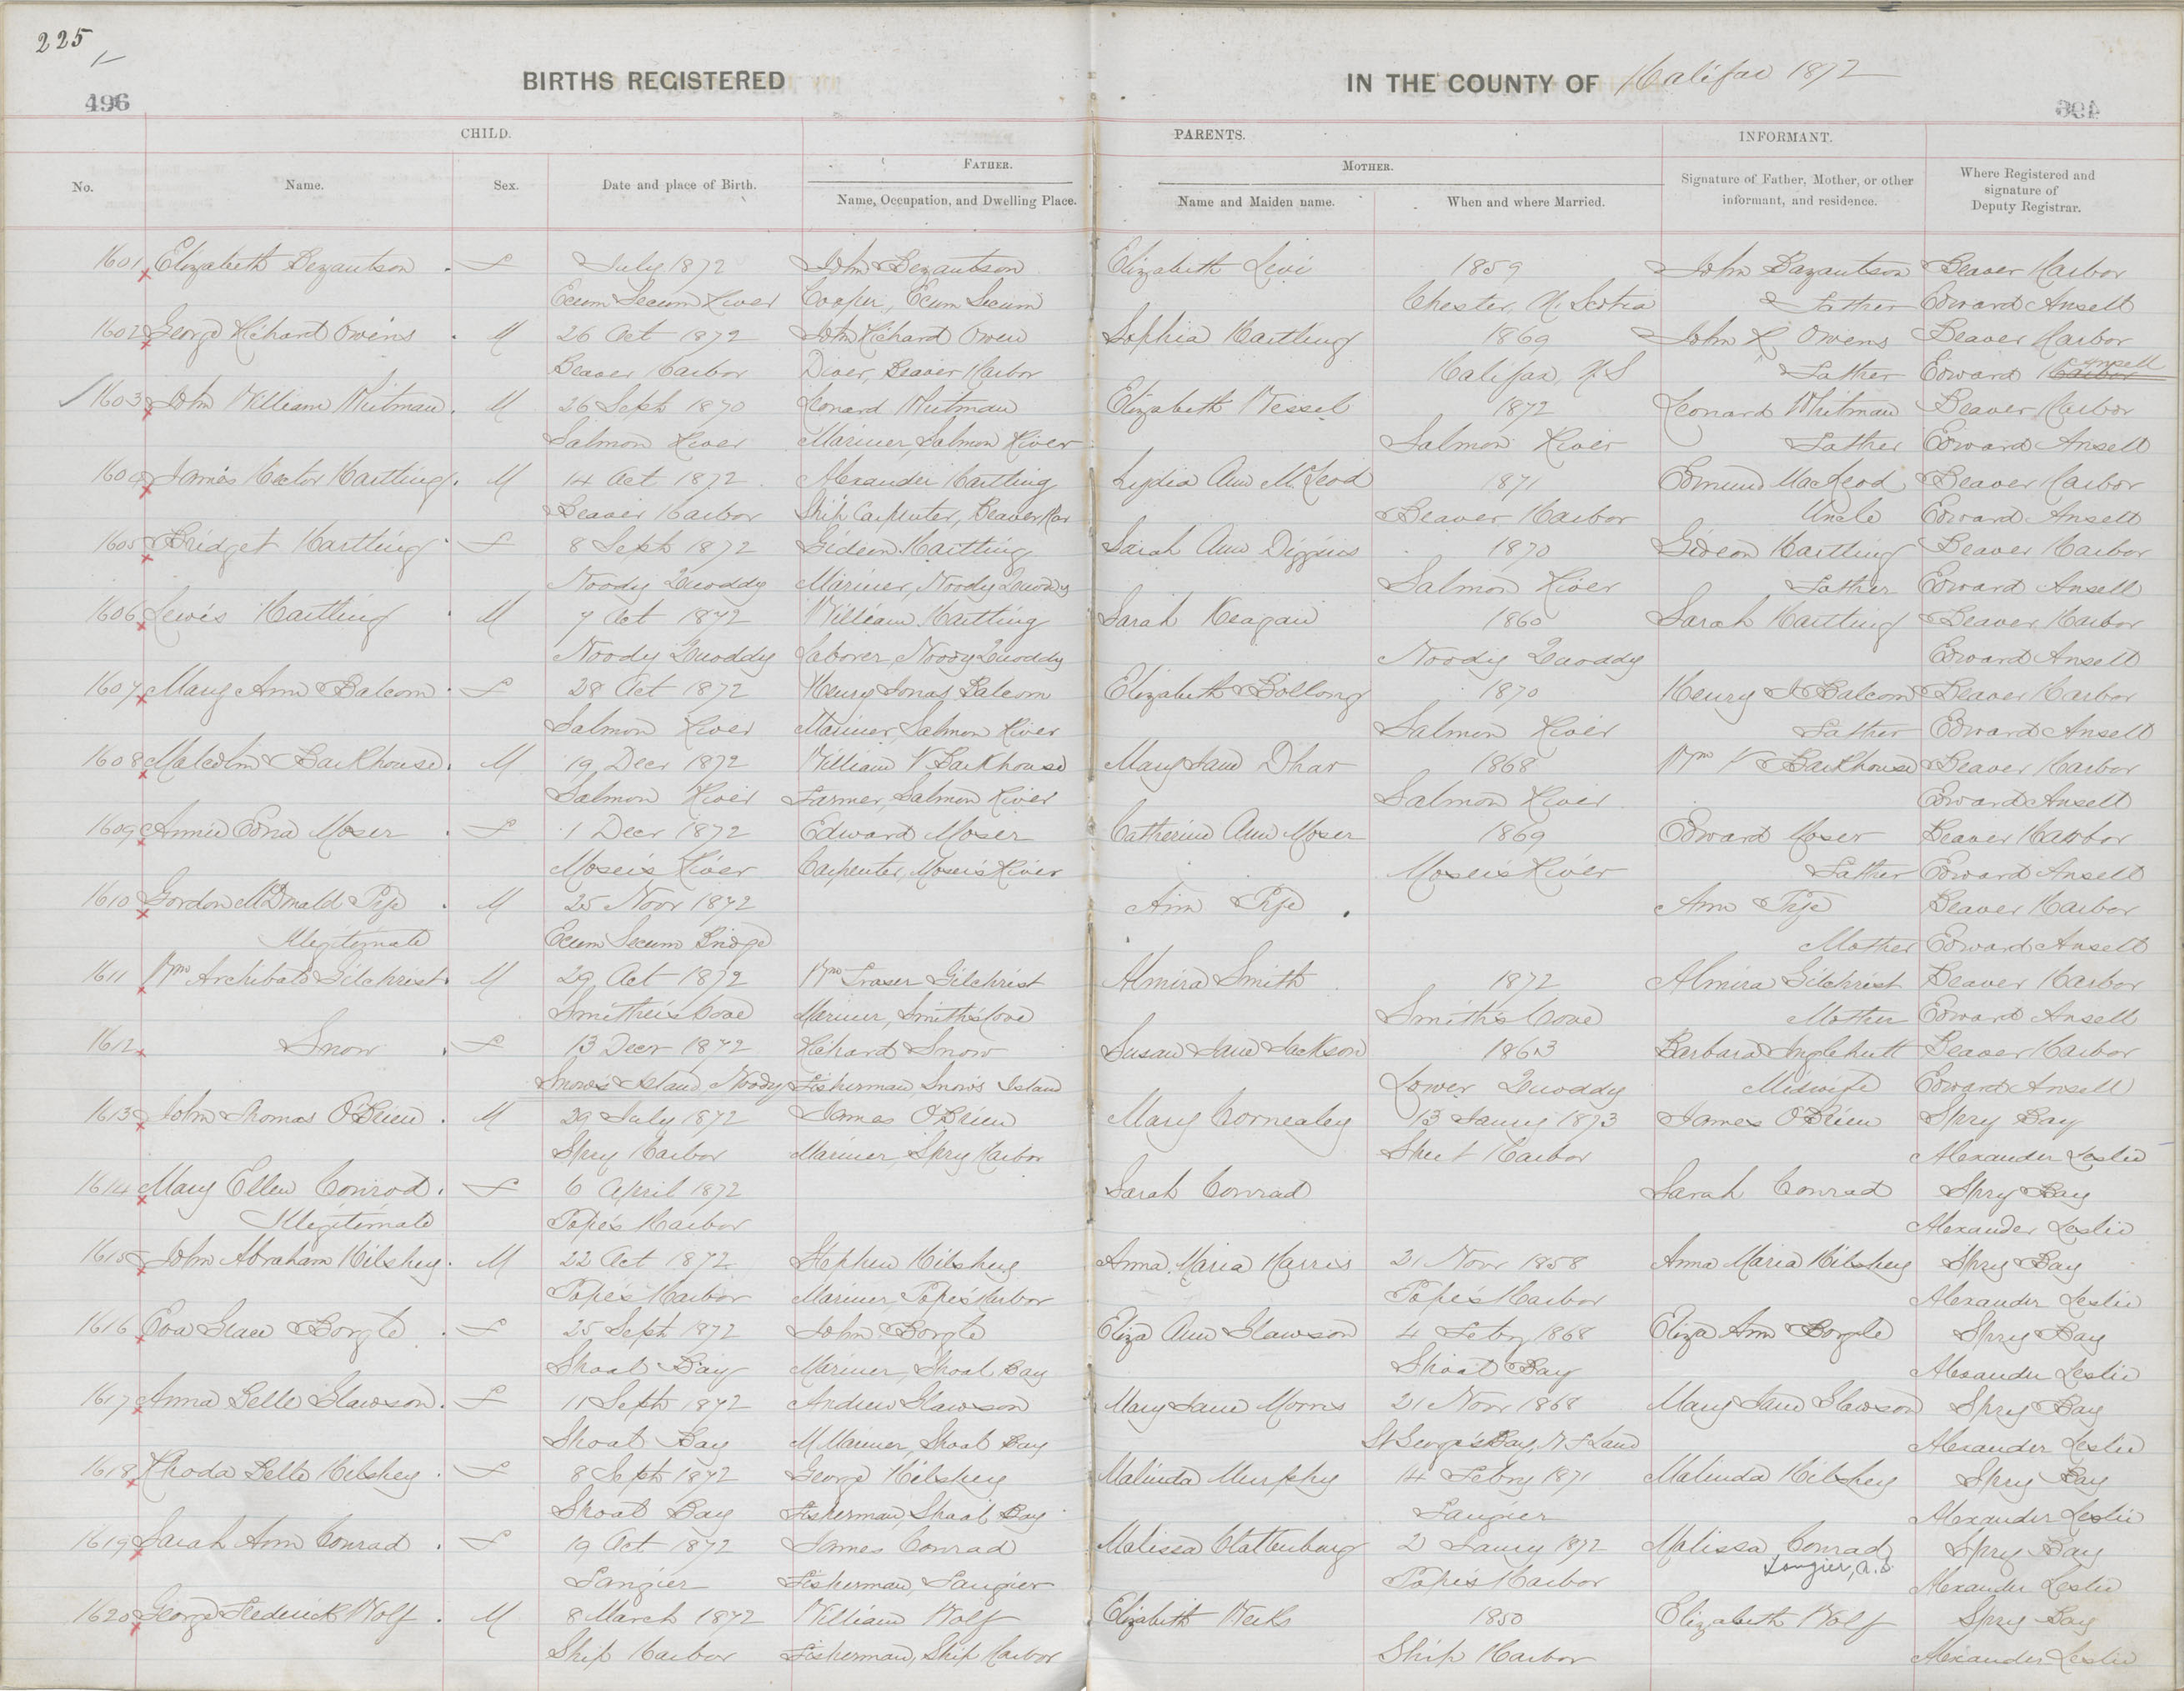 225
496
BIRTHS REGISTERED IN THE COUNTY OF Halifax 1872
CHILD. PARENTS. INFORMANT.
No. Name. Sex. Date and place of Birth. FATHER. Name, Occupation, and Dwelling Place. MOTHER. Name and Maiden name. When and where Married. Signature of Father, Mother, or other informant, and residence. Where Registered and signature of Deputy Registrar.
1601 Elizabeth Bezantson f July 1872 John Bezantson Elizabeth Levi 1859 John Bazantson Beaver Harbor
Ecum Secum River Cooper, Ecum Secum Chester, N. Scotia Father Edward Ansell
1602 George Richard Owens M 26 Oct 1872 John Richard Owen Sophia Hartling 1869 John R Owens Beaver Harbor
Beaver Harbor Diver, Beaver Harbor Halifax, N.S Father Edward Harbor Ansell
1603 John William Whitman M 26 Sept 1870 Leonard Whitman Elizabeth Wessel 1872 Leonard Whitman Beaver Harbor
Salmon River Mariner, Salmon River Salmon River Father Edward Ansell
1604 James Hector Hartling M 14 Oct 1872 Alexander Hartling Lydia Ann McLeod 1871 Edmund MacLeod Beaver Harbor
Beaver Harbor Ship Carpenter, Beaver Har Beaver Harbor Uncle Edward Ansell
1605 Bridget Hartling f 8 Sept 1872 Gideon Hartling Sarah Ann Diggins 1870 Gideon Hartling Beaver Harbor
Noody Quoddy Mariner, Noody Quoddy Salmon River Father Edward Ansell
1606 Lewis Hartling M 7 Oct 1872 William Hartling Sarah Keagan 1860 Sarah Hartling Beaver Harbor
Noody Quoddy Laborer, Noody Quoddy Noody Quoddy Edward Ansell
1607 Mary Ann Balcom f 28 Oct 1872 Henry Jonas Balcom Elizabeth Bollong 1870 Henry J Balcom Beaver Harbor
Salmon River Mariner, Salmon River Salmon River Father Edward Ansell
1608 Malcolm Barkhouse M 19 Decr 1872 William V Barkhouse Mary Jane Dhar 1868 Wm V Barkhouse Beaver Harbor
Salmon River Farmer, Salmon River Salmon River Edward Ansell
1609 Annie Edna Moser f 1 Decr 1872 Edward Moser Catherine Ann Moser 1869 Edward Moser Beaver Harbor
Moser's River Carpenter, Moser's River Moser's River Father Edward Ansell
1610 Gordon McDonald Pye M 25 Novr 1872 Ann Pye Ann Pye Beaver Harbor
Illegitimate Ecum Secum Bridge Mother Edward Ansell
1611 Wm Archibald Gilchrist M 29 Oct 1872 Wm Fraser Gilchrist Almira Smith 1872 Almira Gilchrist Beaver Harbor
Smither's Cove Mariner, Smith's Cove Smith's Cove Mother Edward Ansell
1612 Snow f 13 Decr 1872 Richard Snow Susan Jane Jackson 1863 Barbara Inglehutt Beaver Harbor
Snow's Island, Noody Fisherman, Snow's Island Lower Quoddy Midwife Edward Ansell
1613 John Thomas O'Brien M 29 July 1872 James O'Brien Mary Cornealey 13 Jany 1873 James O'Brien Spry Bay
Spry Harbor Mariner, Spry Harbor Sheet Harbor Alexander Leslie
1614 Mary Ellen Conrod f 6 April 1872 Sarah Conrad Sarah Conrad Spry Bay
Illegitimate Pope's Harbor Alexander Leslie
1615 John Abraham Hilshey M 22 Oct 1872 Stephen Hilshey Anna Maria Harris 21 Novr 1858 Anna Maria Hilshey Spry Bay
Pope's Harbor Mariner, Pope's Harbor Pope's Harbor Alexander Leslie
1616 Eva Grace Borgle f 25 Sept 1872 John Borgle Eliza Ann Glawson 4 Feby 1868 Eliza Ann Borgle Spry Bay
Shoal Bay Mariner, Shoal Bay Shoal Bay Alexander Leslie
1617 Anna Belle Glawson f 11 Sept 1872 Andrew Glawson Mary Jane Morris 21 Novr 1868 Mary Jane Glawson Spry Bay
Shoal Bay M Mariner, Shoal Bay St George's Bay, N F Land Alexander Leslie
1618 Rhoda Belle Hilshey f 8 Sept 1872 George Hilshey Malinda Murphy 14 Febry 1871 Malinda Hilshey Spry Bay
Shoal Bay Fisherman, Shoal Bay Tangier Alexander Leslie
1619 Sarah Ann Conrad f 19 Oct 1872 James Conrad Melissa Clattenburg 2 Jany 1872 Melissa Conrad Spry Bay
Tangier Fisherman, Tangier Pope's Harbor Tangier, Alexander Leslie
1620 George Frederick Wolf M 8 March 1872 William Wolf Elizabeth Weeks 1850 Elizabeth Wolf Spry Bay
Ship Harbor Fisherman, Ship Harbor Ship Harbor Alexander Leslie